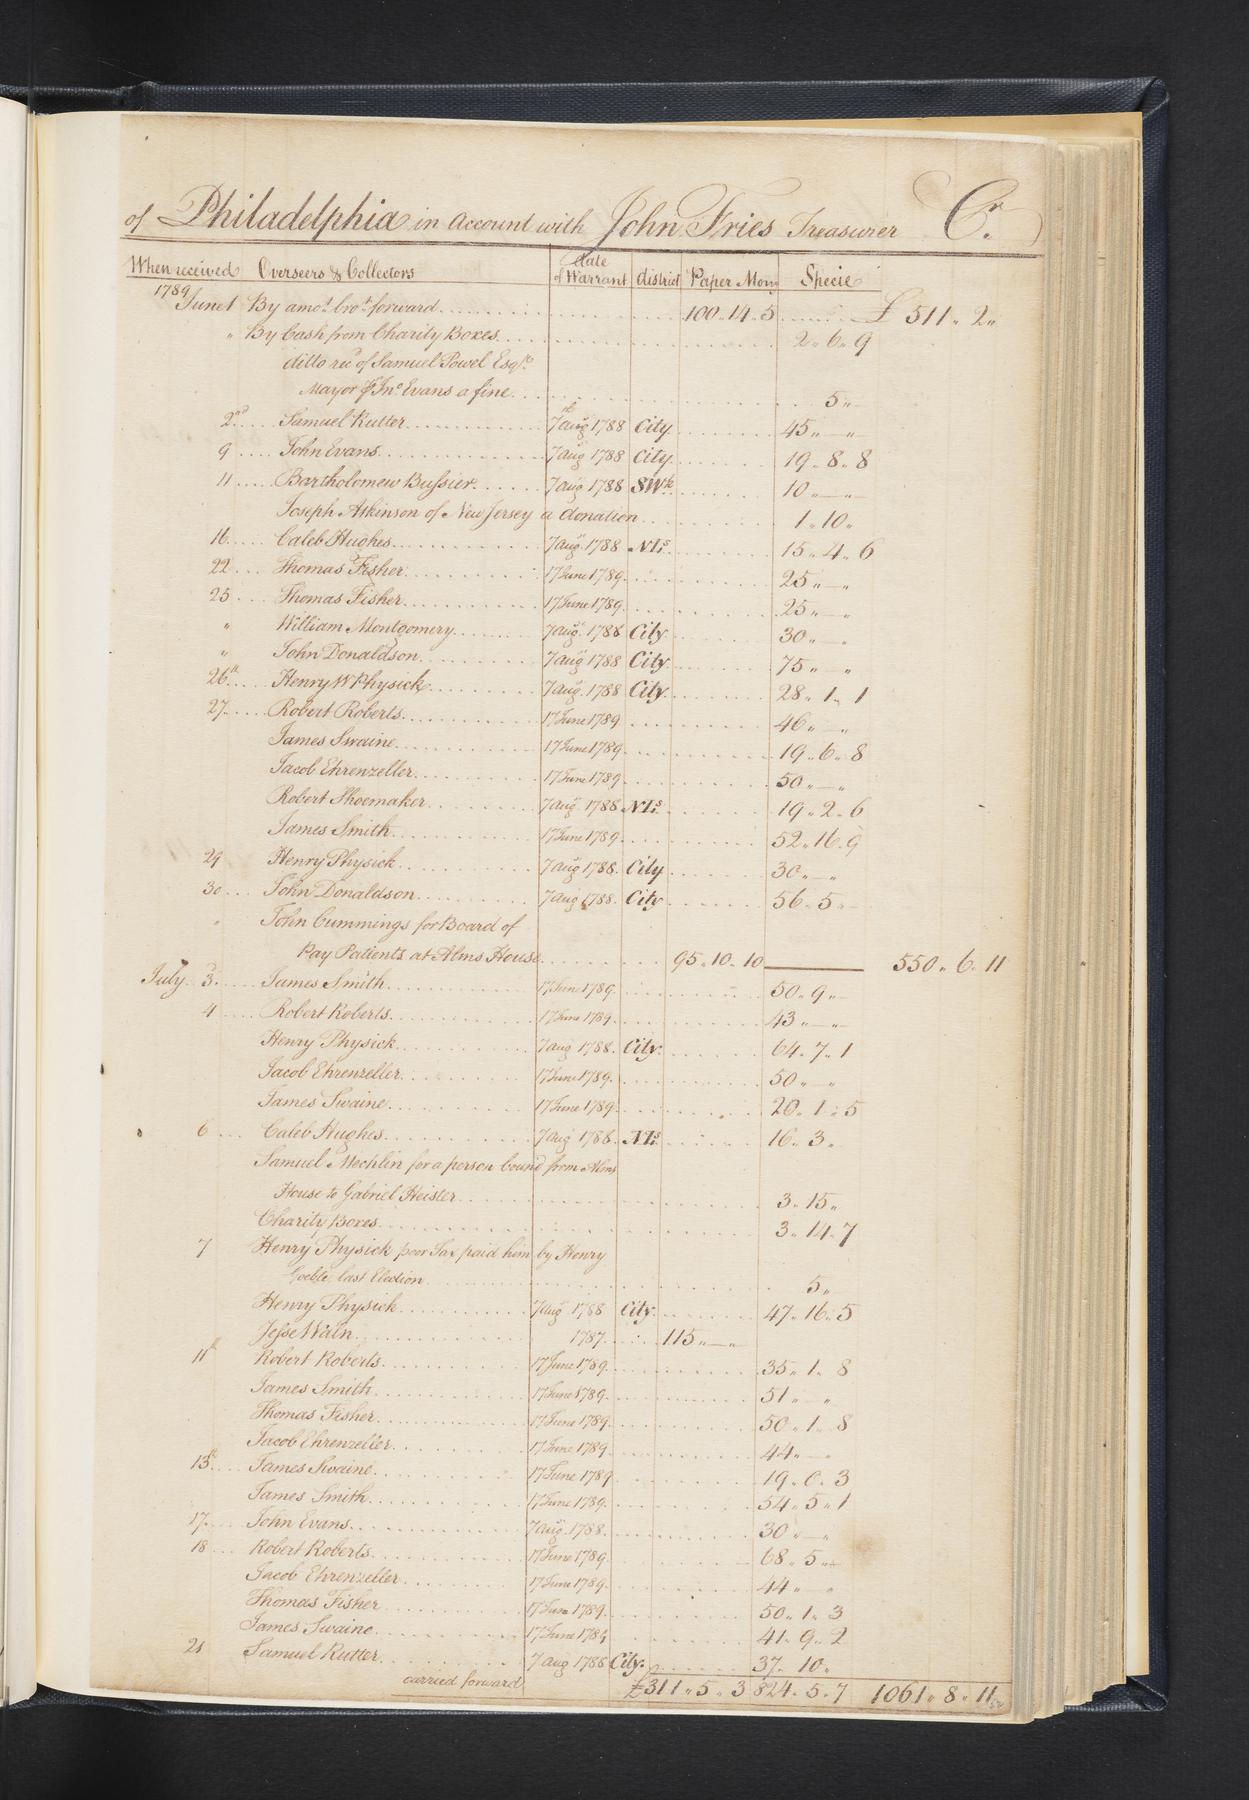 of Philadelphia in Account with John Fries Treasurer Cr.
When received Overseers & Collectors date of Warrant district Paper Mony Specie
1789
June 1 By amot. brot. forward 100 .. 14 .. 5 £ 511 .. 2 ..
" By Cash from Charity Boxes 2 .. 6 .. 9
ditto recd of Samuel Powel Esqr.
Mayor of Jno Evans a fine 5 ..
2nd Samuel Rutter 7th aug 1788 City 45 .. — ..
9 John Evans 7 aug 1788 City 19 .. 8 .. 8
11 Bartholomew Bussier 7 aug 1788 SWk. 10 .. — ..
Joseph Atkinson of New Jersey a donation 1 .. 10 ..
16 Caleb Hughes 7 aug. 1788 NLs. 15 .. 4 .. 6
22 Thomas Fisher 17 June 1789 25 .. — ..
25 Thomas Fisher 17 June 1789 25 .. — ..
" William Montgomery 7 aug. 1788 City 30 .. — ..
" John Donaldson 7 aug 1788 City 75 .. — ..
26th Henry W Physick 7 aug. 1788 City 28 .. 1 .. 1
27 Robert Roberts 17 June 1789 46 .. — ..
James Swaine 17 June 1789 19 .. 6 .. 8
Jacob Ehrenzeller 17 June 1789 50 .. — ..
Robert Shoemaker 7 aug. 1788 NLs. 19 .. 2 .. 6
James Smith 17 June 1789 52 .. 16 .. 9
29 Henry Physick 7 aug 1788 City 30 .. — ..
30 John Donaldson 7 aug 1788 City 56 .. 5 .. —
" John Cummings for Board of
Pay Patients at Alms House 95 .. 10 .. 10 550 .. 6 .. 11
July 3d. James Smith 17 June 1789 50 .. 9 .. —
4 Robert Roberts 17 June 1789 43 .. — ..
Henry Physick 7 aug 1788 City 64 .. 7 .. 1
Jacob Ehrenzeller 17 June 1789 50 .. — ..
James Swaine 17 June 1789 20 .. 1 .. 5
6 Caleb Hughes 7 aug 1788 NLs. 16 .. 3 ..
Samuel Mechlin for a person bound from Alms
House to Gabriel Heisler 3 .. 15 ..
Charity Boxes 3 .. 14 .. 7
7 Henry Physick poor Tax paid him by Henry
last Election 5 ..
Henry Physick 7 aug 1788 City 47 .. 16 .. 5
Jesse Waln 1787 115 .. — ..
11th Robert Roberts 17 June 1789 35 .. 1 .. 8
James Smith 17 June 1789 51 .. — ..
Thomas Fisher 17 June 1789 50 .. 1 .. 8
Jacob Ehrenzeller 17 June 1789 44 .. — ..
13th James Swaine 17 June 1789 19 .. 0 .. 3
James Smith 17 June 1789 54 .. 5 .. 1
17 John Evans 7 aug. 1788 30 .. — ..
18 Robert Roberts 17 June 1789 68 .. 5 .. —
Jacob Ehrenzeller 17 June 1789 44 .. — ..
Thomas Fisher 17 June 1789 50 .. 1 .. 3
James Swaine 17 June 1789 41 .. 9 .. 2
21 Samuel Rutter 7 aug 1788 City 37 .. 10 ..
carried forward £311 .. 5 .. 3 824 .. 5 .. 7 1061 .. 8 .. 11